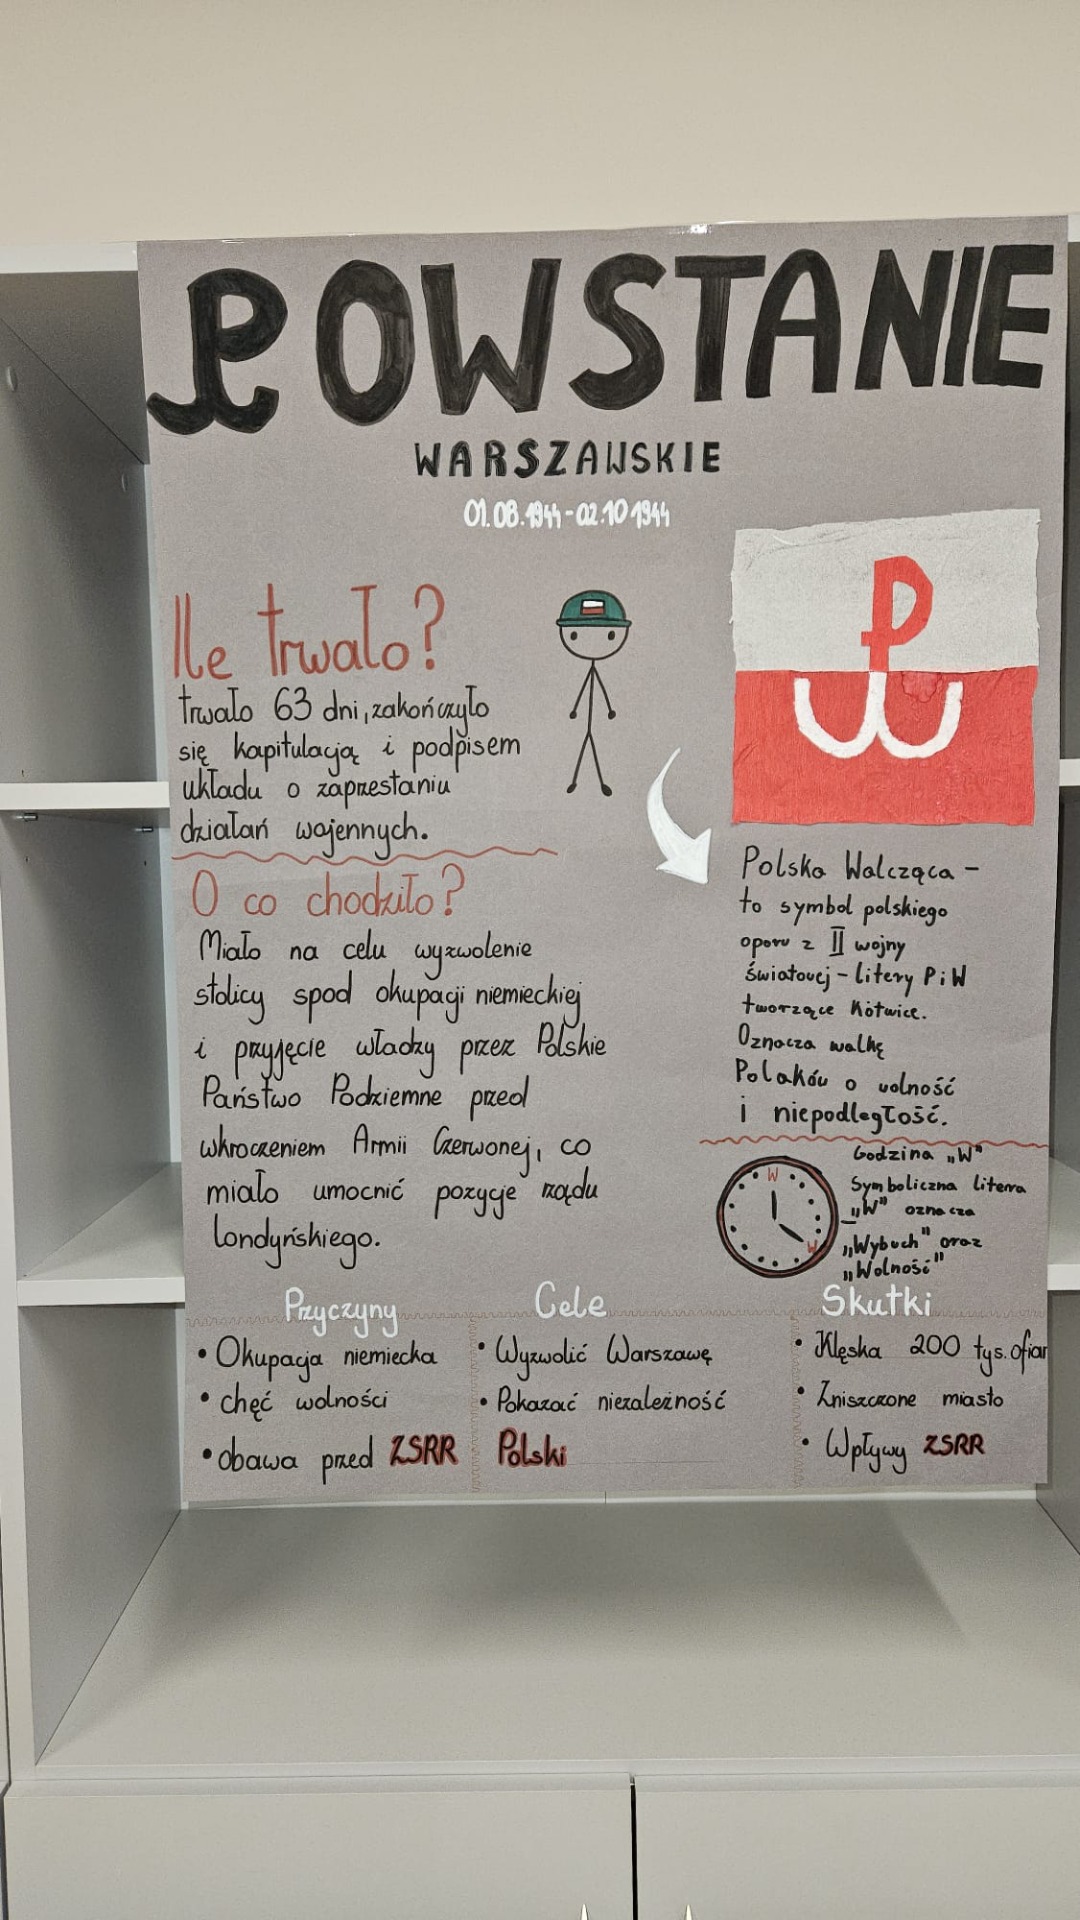 POWSTANIE
WARSZAWSKIE
01.08.1944-02.10 1944
Ile trwało?
trwało 63 dni, zakończyło
się kapitulacją i podpisem
układu o zaprzestaniu
działań wojennych.
O co chodziło?
Miało na celu wyzwolenie
stolicy spod okupacji niemieckiej
i przyjęcie władzy przez Polskie
Państwo Podziemne przed
wkroczeniem Armii Czerwonej, co
miało umocnić pozycje rządu
londyńskiego.
PW
Polska Walcząca -
to symbol polskiego
oporu z II wojny
światowej - litery P i W
tworzące kotwice.
Oznacza walkę
Polaków o wolność
i niepodległość.
W
W
Godzina „W"
Symboliczna literra
„W" oznacza
„Wybuch" oraz
„Wolność"
Przyczyny
• Okupacja niemiecka
• chęć wolności
• obawa przed ZSRR
Cele
• Wyzwolić Warszawę
• Pokazać niezależność
Polski
Skutki
• Klęska 200 tys. ofiar
• Zniszczone miasto
• Wpływy ZSRR